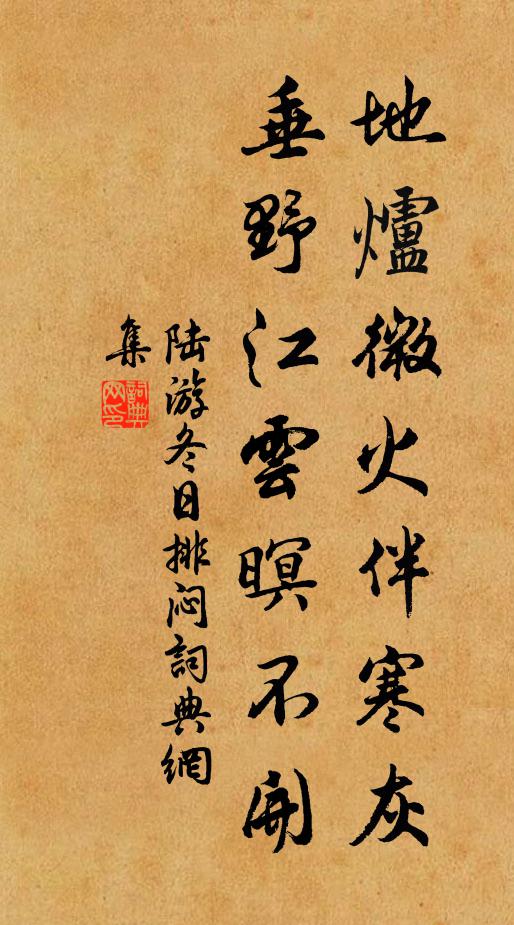 地爐微火伴寒灰
垂野江雲暝不開
陆游冬日排闷詞典網
集
詞典网印